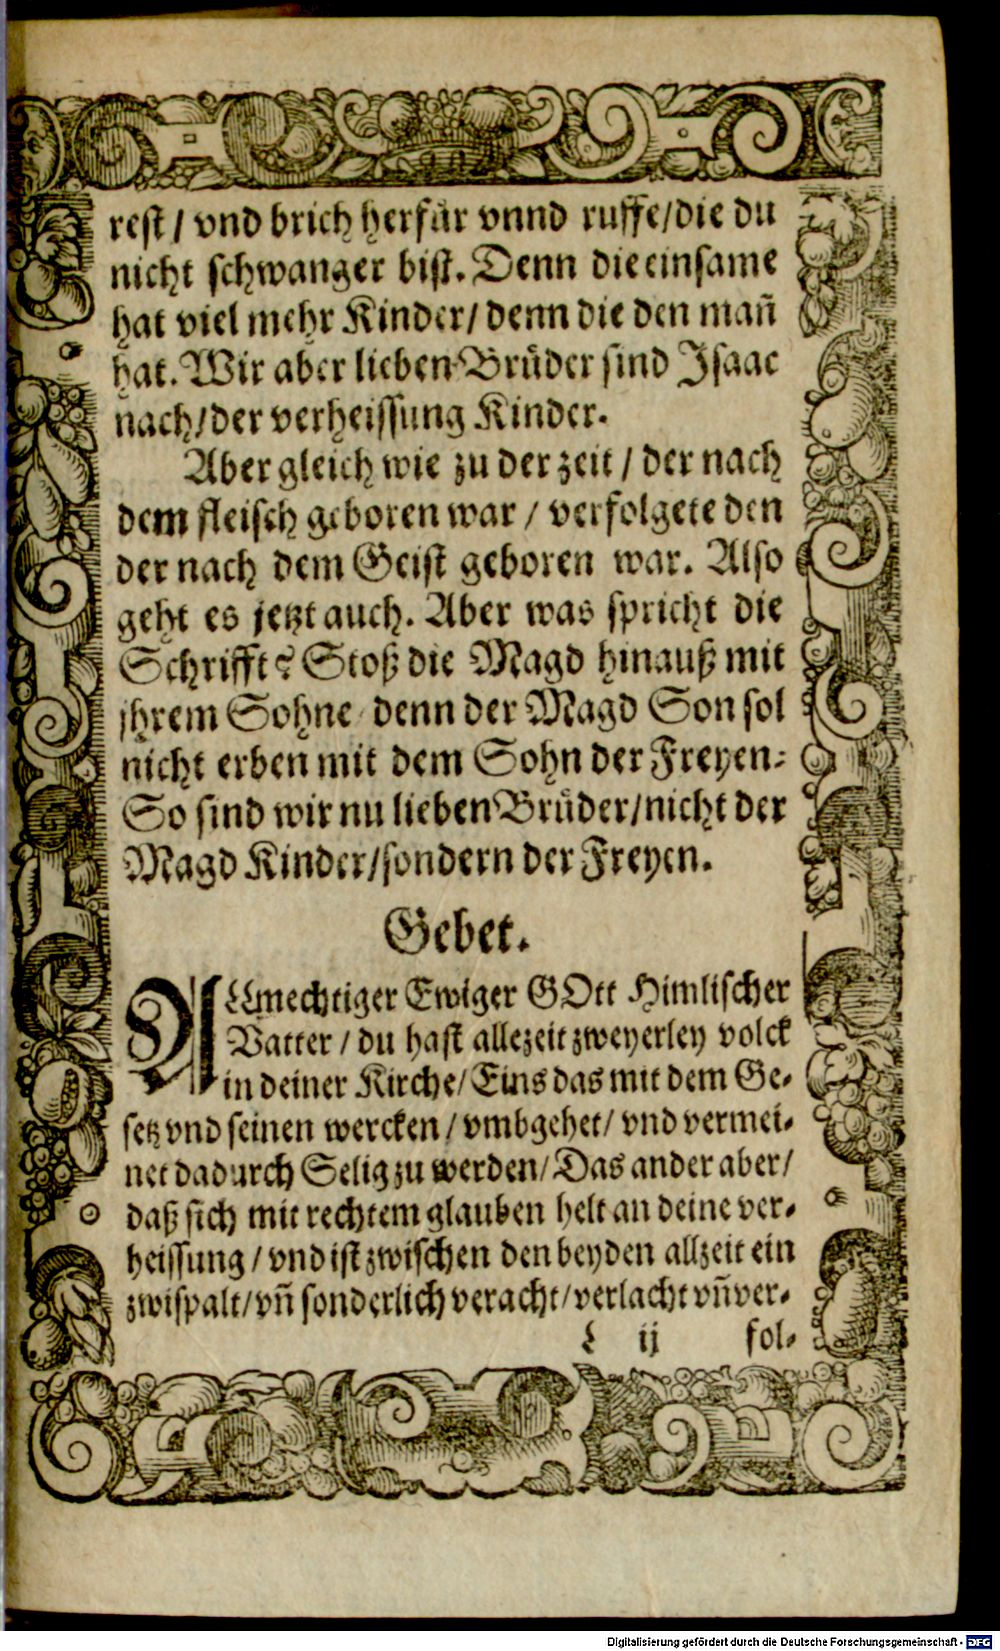 rest / vnd brich herfür vnnd ruffe/die du
nicht schwanger bist. Denn die einsame
hat viel mehr Kinder/ denn die den mañ
hat. Wir aber lieben Brüder sind Isaac
nach/der verheissung Kinder.
Aber gleich wie zu der zeit / der nach
dem fleisch geboren war / verfolgete den
der nach dem Geist geboren war. Also
geht es jetzt auch. Aber was spricht die
Schrifft? Stoß die Magd hinauß mit
jhrem Sohne / denn der Magd Son sol
nicht erben mit dem Sohn der Freyen.
So sind wir nu lieben Brüder/nicht der
Magd Kinder/sondern der Freyen.
Gebet.
ALLmechtiger Ewiger GOtt Himlischer
Vatter / du hast allezeit zweyerley volck
in deiner Kirche/ Eins das mit dem Ge-
setz vnd seinen wercken / vmbgehet/ vnd vermei-
net dadurch Selig zu werden/ Das ander aber/
daß sich mit rechtem glauben helt an deine ver-
heissung / vnd ist zwischen den beyden allzeit ein
zwispalt/ vñ sonderlich veracht/ verlacht vñ ver-
L ij fol-
Digitalisierung gefördert durch die Deutsche Forschungsgemeinschaft - DFG